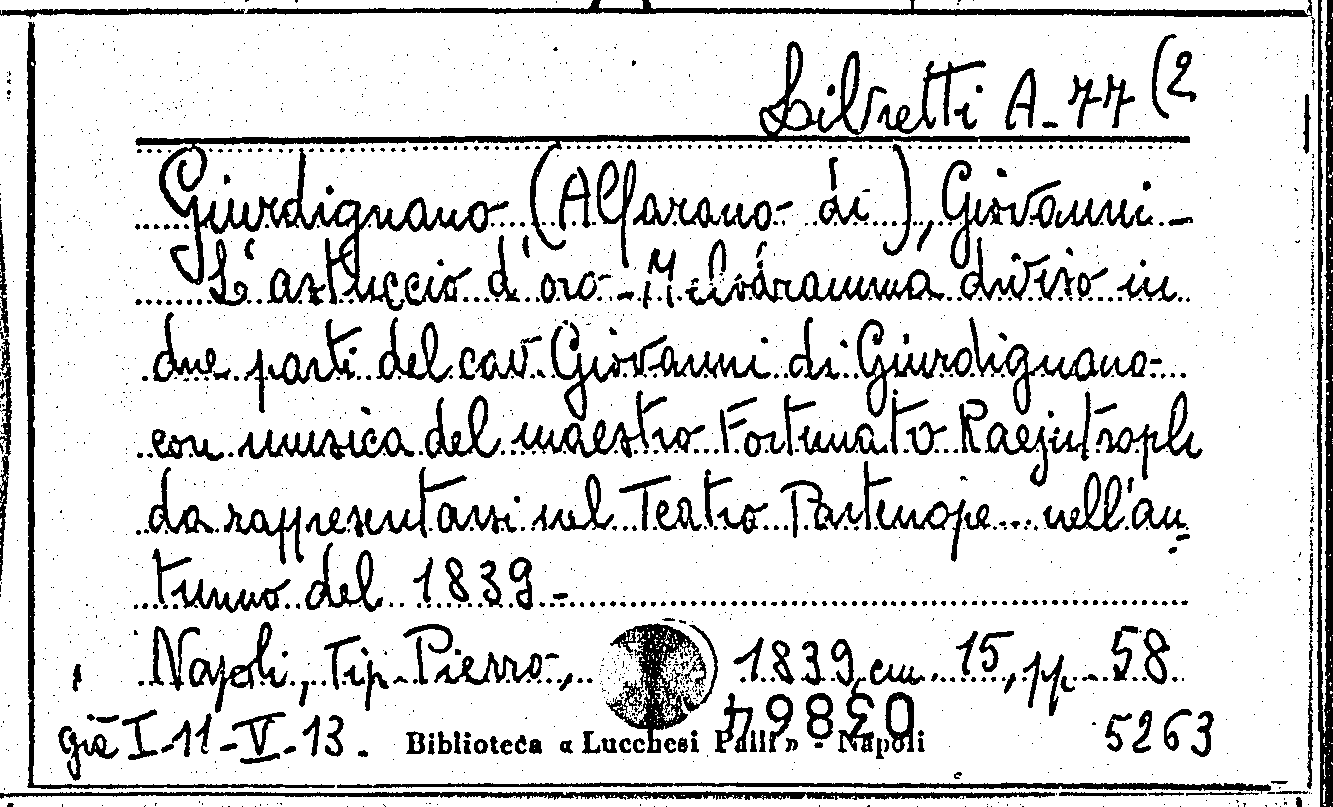 Libretti A-77 (2
Giurdignano (Alfarano di), Giovanni -
L'astuccio d'oro - Melodramma diviso in
due parti del cav. Giovanni di Giurdignano
con musica del maestro Fortunato Raejntroph
da rappresentarsi nel Teatro Partenope nell'au
tunno del 1839 -
Napoli, Tip. Pierro, 1839, cm. 15, pp. 58
03864
già I-11-V-13. Biblioteca « Lucchesi Palli » - Napoli 5263